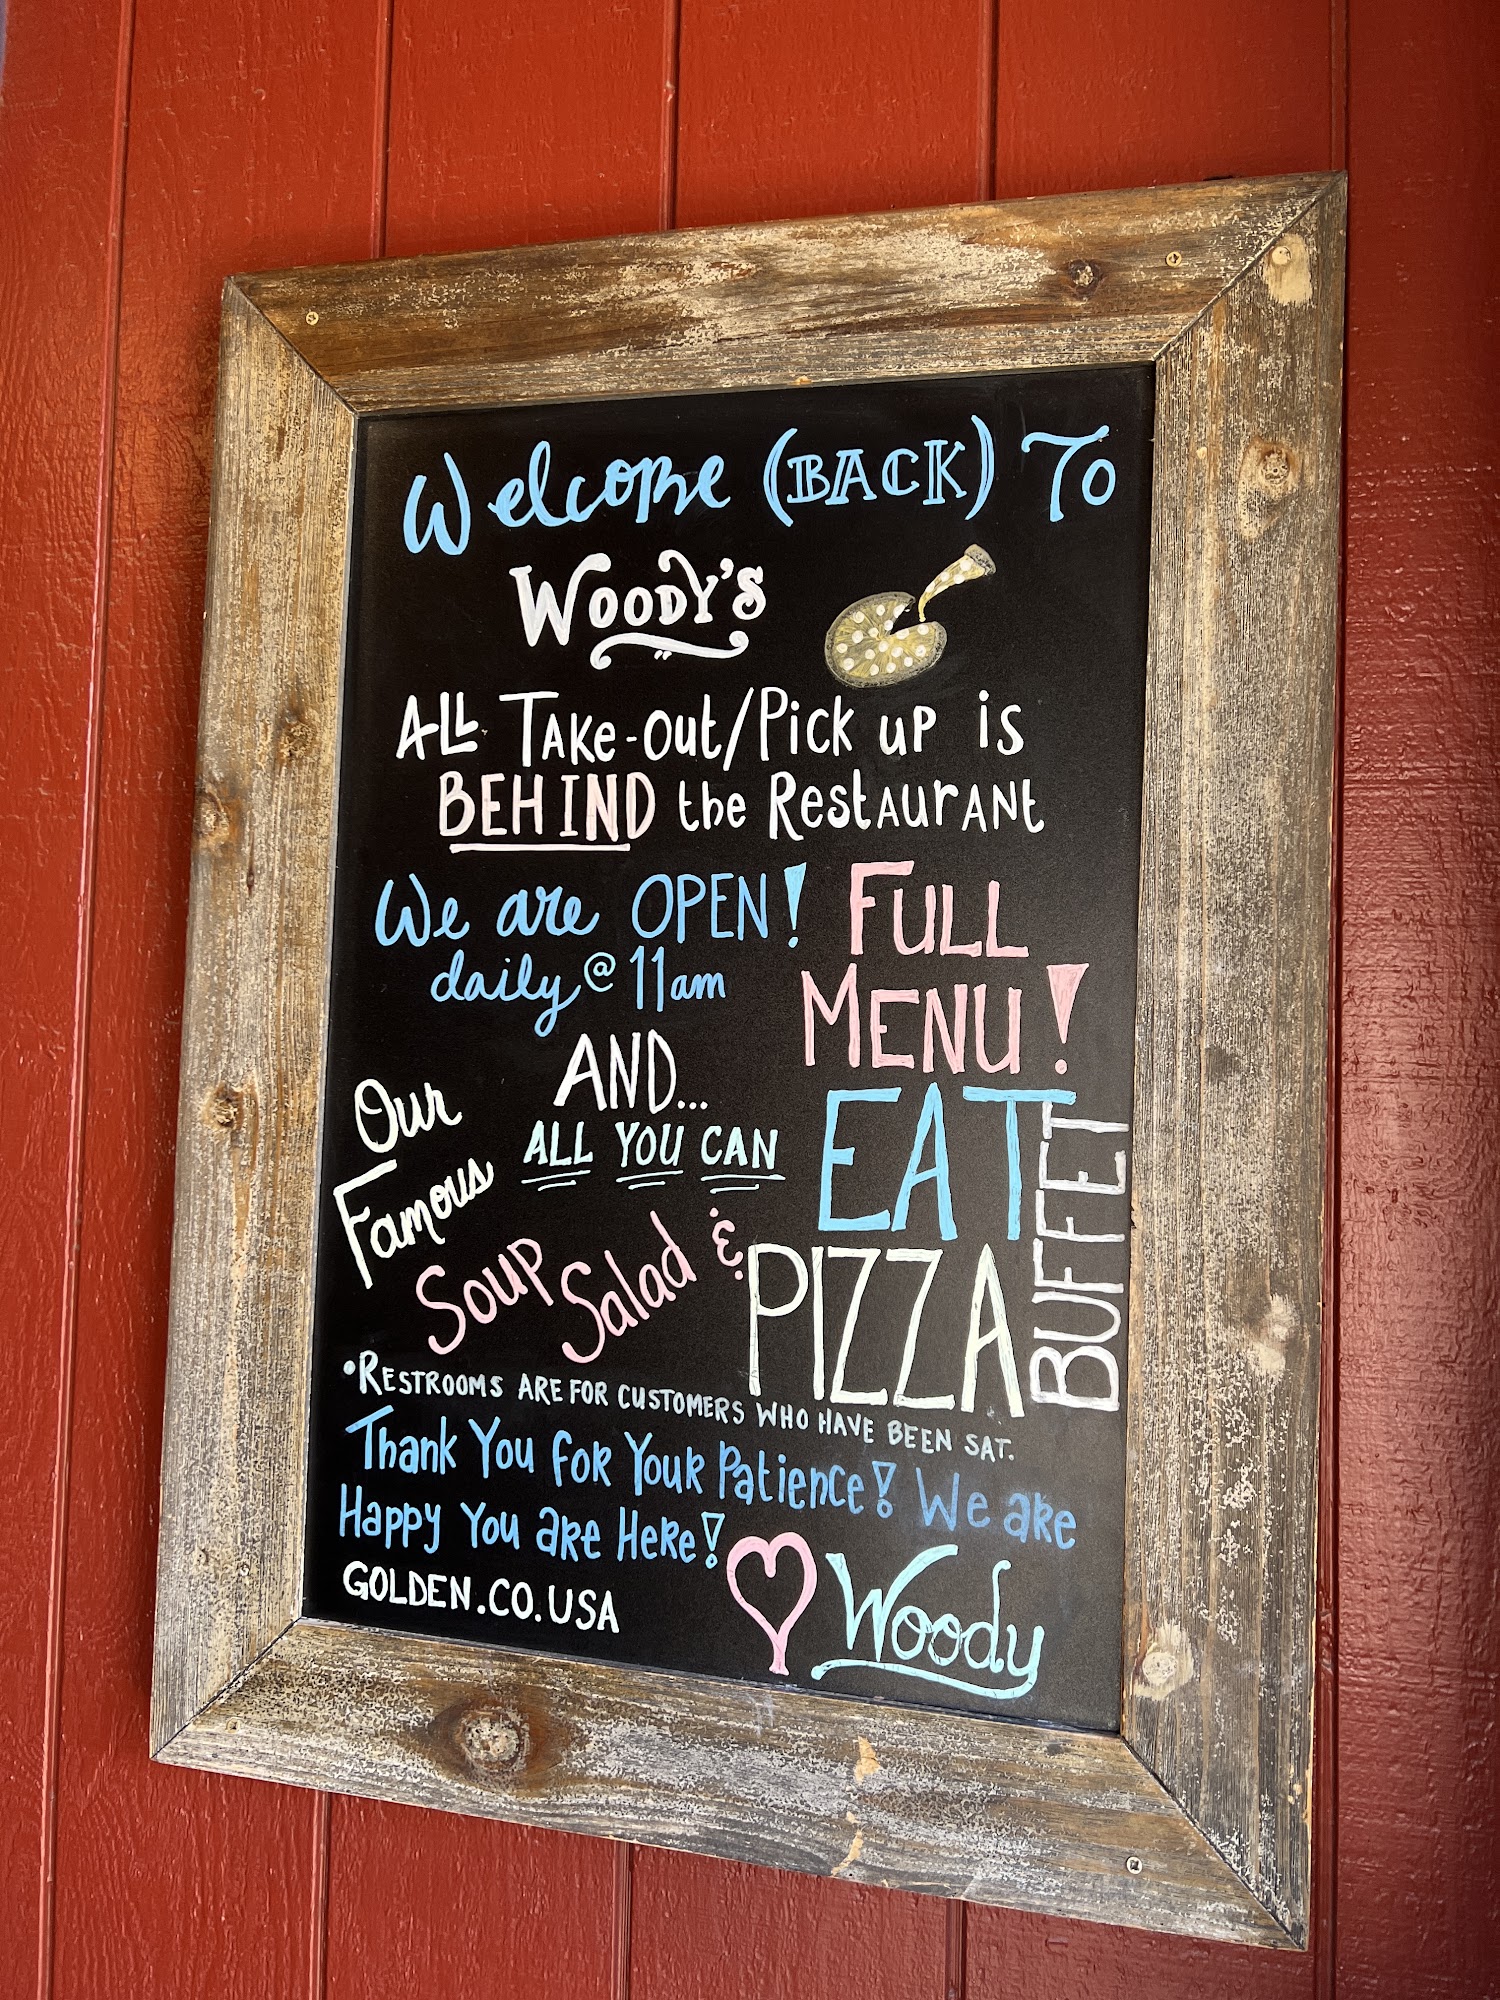 Welcome (BACK) To
WOODY'S
ALL TAKe-out/Pick uP is
BEHIND the RestAurANt
We are OPEN!
daily @ 11am
FULL
MENU!
AND...
ALL YOU CAN
EAT
Our
Famous
Soup Salad &
PIZZA
BUFFET
•RESTROOMS ARE FOR CUSTOMERS WHO HAVE BEEN SAT.
Thank You foR YouR Patience! We aRe
Happy You aRe HeRe!
GOLDEN.CO.USA
Woody